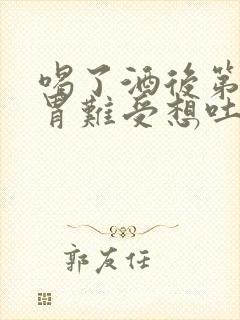 喝了酒後第
胃難受想吐
郭友任